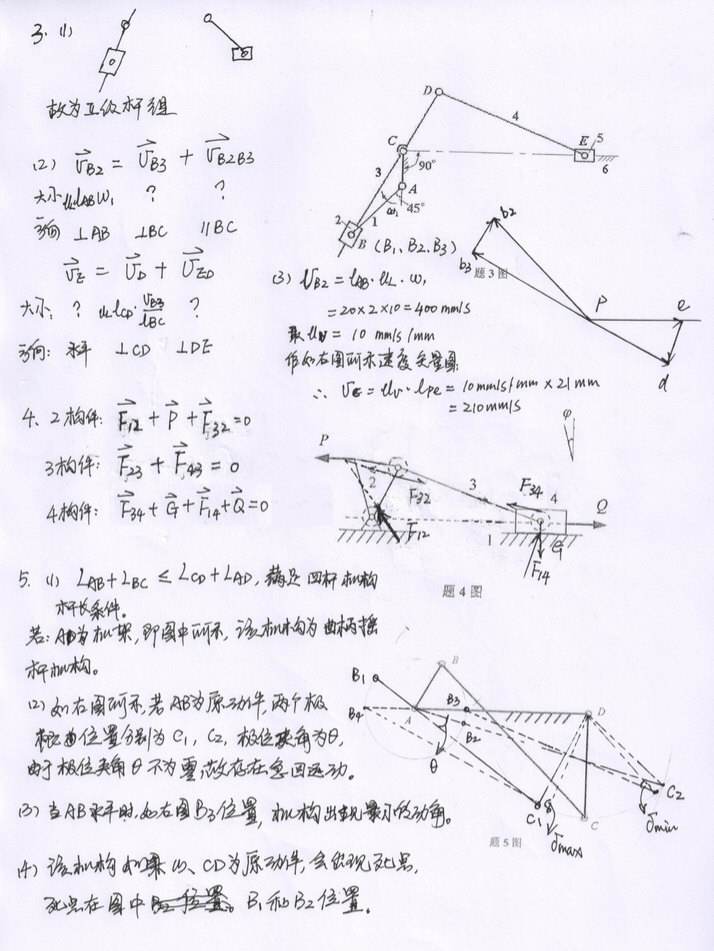 3. (1)
故为II级杆组
(2) v_B2 = v_B3 + v_B2B3
大小 μ_L l_AB ω₁ ? ?
方向 ⊥AB ⊥BC ∥BC
v_E = v_D + v_ED
大小: ? μ_L l_CD · v_B3/l_BC ?
方向: 水平 ⊥CD ⊥DE
D
4
C
E
5
6
3
90°
A
ω₁
45°
1
2
B (B₁、B₂、B₃)
b₂
b₃
题 3 图
P
e
d
(3) v_B2 = l_AB · μ_L · ω₁
= 20×2×10 = 400 mm/s
取 μ_v = 10 mm/s/mm
作如右图所示速度矢量图
∴ v_E = μ_v · l_pe = 10 mm/s/mm × 21 mm
= 210 mm/s
4. 2构件: F₁₂ + P + F₃₂ = 0
3构件: F₂₃ + F₄₃ = 0
4构件: F₃₄ + G + F₁₄ + Q = 0
φ
P
2
F₃₂
3
F₃₄
4
Q
F₁₂
1
G
F₁₄
题 4 图
5. (1) L_AB + L_BC ≤ L_CD + L_AD, 满足四杆机构
杆长条件。
若: AD为机架, 即图中所示, 该机构为曲柄摇
杆机构。
(2) 如右图所示, 若AB为原动件, 两个极
位置分别为C₁, C₂, 极位夹角为θ,
由于极位夹角θ不为零故存在急回运动。
(3) 当AB水平时, 如右图B₃位置, 机构出现最小传动角。
(4) 该机构如果以、CD为原动件, 会出现死点,
死点在图中 B₁和B₂位置。
B₁
B
B₄
A
B₃
B₂
D
θ
C₁
C
C₂
δmax
δmin
题 5 图